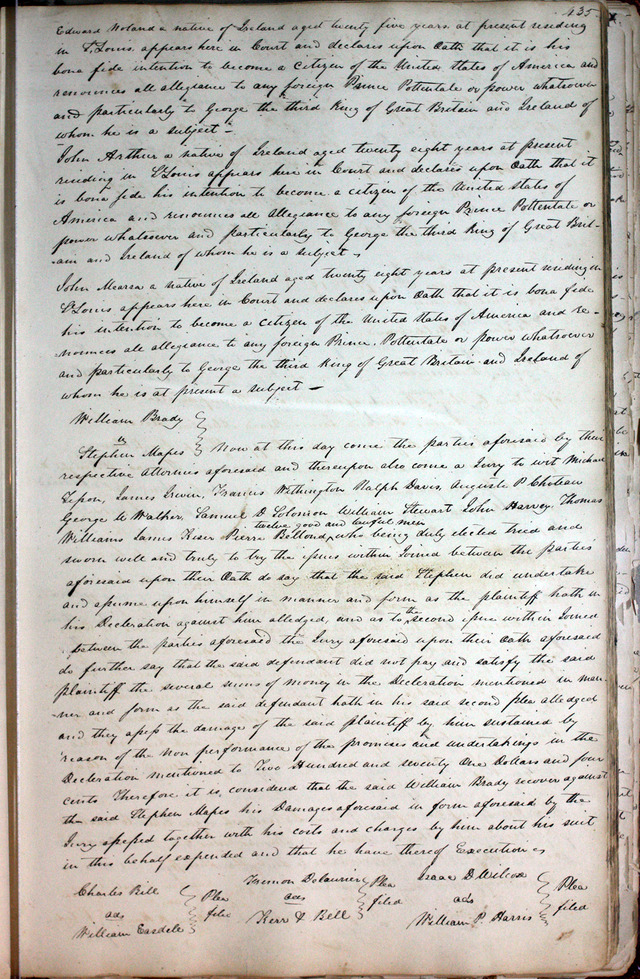 435
Edward Noland a native of Ireland aged twenty five years at present residing
in St Louis appears here in Court and declares upon Oath that it is his
bona fide intention to become a Citizen of the United States of America and
renounces all allegiance to any foreign Prince Pottentate or power whatsoever
and particularly to George the third King of Great Britain and Ireland of
whom he is a subject —
John Arthur a native of Ireland aged twenty eight years at present
residing in St Louis appears here in Court and declares upon Oath that it
is bona fide his intention to become a citizen of the United States of
America and renounces all Allegiance to any foreign Prince Pottentate or
power whatsoever and particularly to George the third King of Great Brit-
ain and Ireland of whom he is a subject
John Meara a native of Ireland aged twenty eight years at present residing in
St Louis appears here in Court and declares upon Oath that it is bona fide
his intention to become a Citizen of the United States of America and re-
nounces all allegiance to any foreign Prince, Pottentate or power whatsoever
and particularly to George the third King of Great Britain and Ireland of
whom he is at present a subject —
William Brady
vs
Stephen Mapes Now at this day come the parties aforesaid by their
respective attornies aforesaid and thereupon also come a Jury to wit Michael
James Irwin, Francis Withington Ralph Davis, Auguste P Choteau
George W Walker, Samuel D Solomon William Stewart John Harvey. Thomas
twelve good and lawful men
Williams James Kiser Pierre Bellond, who being duly elected tried and
sworn well and truly to try the issues within Joined between the parties
aforesaid upon their Oath do say that the said Stephen did undertake
and assume upon himself in manner and form as the plaintiff hath in
his Declaration against him alledged, and as to the second issue within Joined
between the parties aforesaid the Jury aforesaid upon their Oath aforesaid
do further say that the said defendant did not pay and satisfy the said
plaintiff the several sums of money in the Declaration mentioned in man-
ner and form as the said defendant hath in his said second plea alledged
and they assess the damage of the said plaintiff by him sustained by
reason of the non performance of the promises and undertakings in the
Declaration mentioned to Two Hundred and seventy One Dollars and four
cents Therefore it is considered that the said William Brady recover against
the said Stephen Mapes his Damages aforesaid in form aforesaid by the
Jury assessed together with his costs and charges by him about his suit
in this behalf expended and that he have thereof Execution &c
Charles Bell
ads
William Easdele
Plea
filed
Fremon Delaurier
ads
Kerr & Bell
Plea
filed
Isaac D Wilcox
ads
William P. Harris
Plea
filed